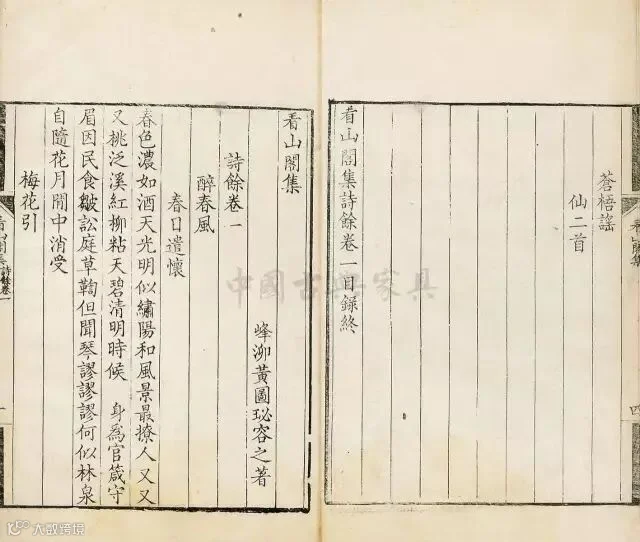 蒼梧謠
仙二首
看山閣集詩餘卷一目録終
看山閣集
峰泖黃圖珌容之著
詩餘卷一
醉春風
春日遣懷
春色濃如酒天光明似繡陽和風景最撩人又又
又桃泛溪紅柳粘天碧清明時候　身為官箴守
眉因民食皺訟庭草鞫但聞琴謬謬謬何似林泉
自隨花月閒中消受
梅花引
看山閣集
四
看山閣集
詩餘卷一
一
中國古典家具
大數跨境